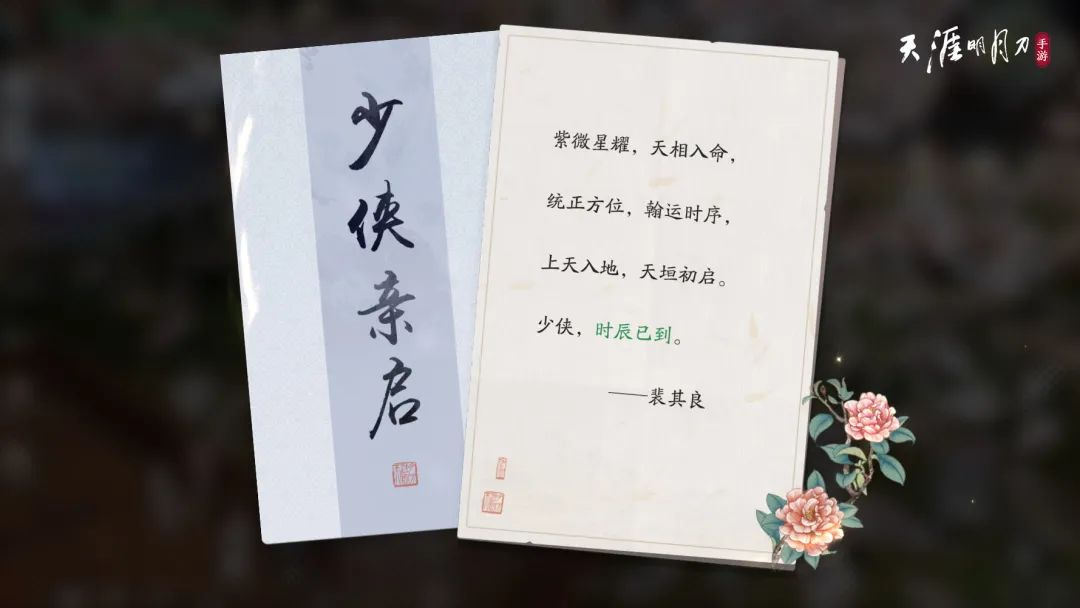 少侠亲启
紫微星耀，天相入命，
统正方位，翰运时序，
上天入地，天垣初启。
少侠，时辰已到。
——裴其良
天涯明月刀
手游